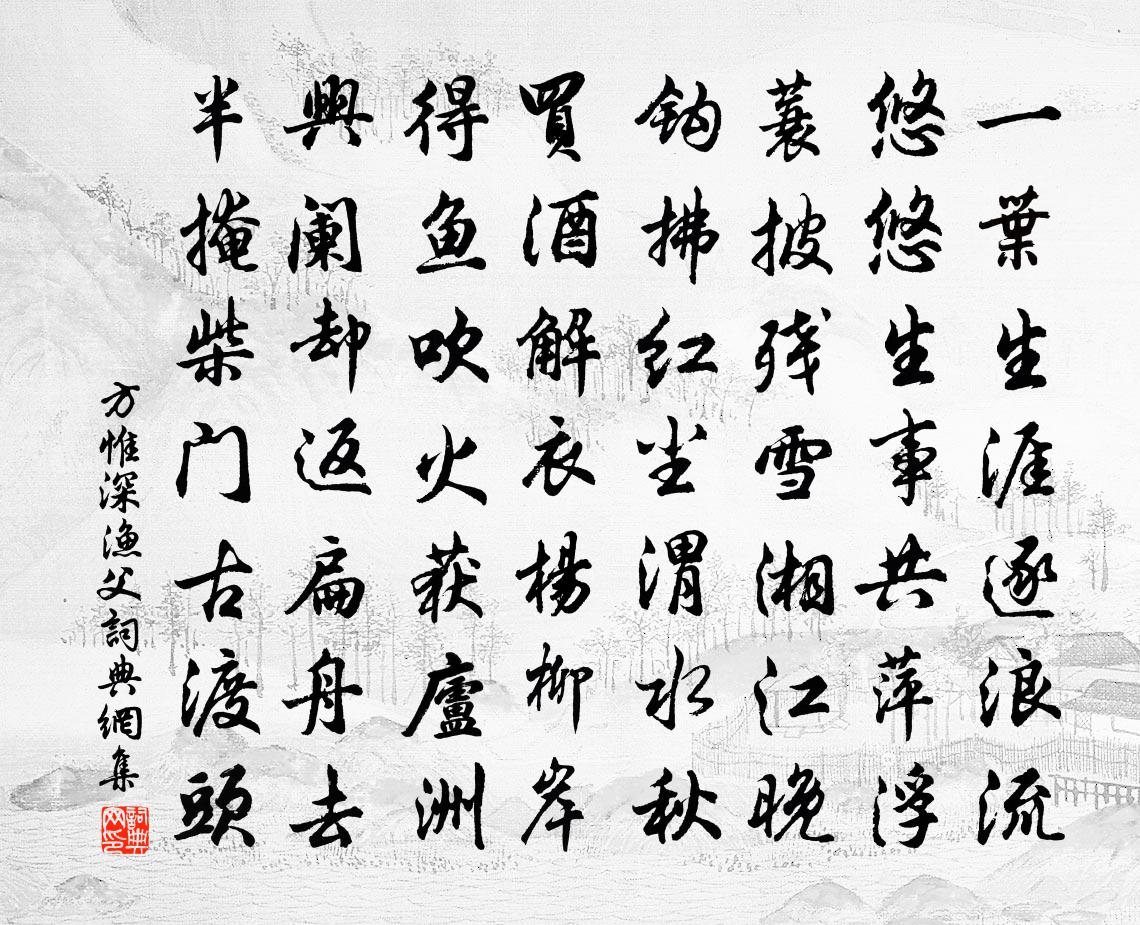 一葉生涯逐浪流
悠悠生事共萍浮
蓑披残雪湘江晚
鈎拂红尘渭水秋
買酒解衣楊柳岸
得鱼吹火荻廬洲
興阑却返扁舟去
半掩柴门古渡頭
方惟深漁父詞典網集
詞典
网印